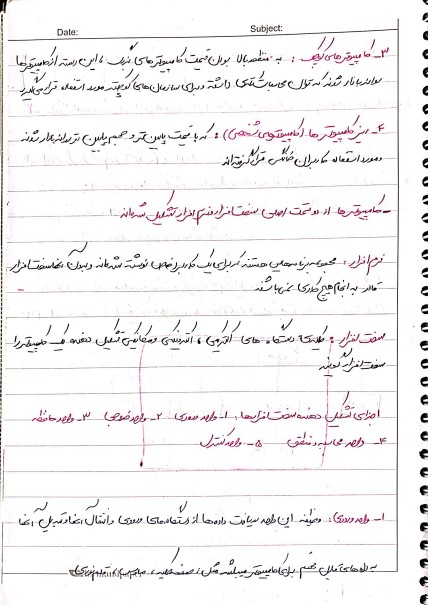 Date: Subject:
۳- کامپیوترهای کوچک : به منظور بالا بودن قیمت کامپیوترهای بزرگ ، این دسته از کامپیوترها
روانه بازار شدند که توان محاسباتی کمتری داشته و برای سازمان‌های کوچکتر مورد استفاده قرار می‌گیرد
۴- ریز کامپیوترها (کامپیوترهای شخصی) : که با قیمت پایین‌تر و حجم پایین‌تر روانه بازار شدند
و مورد استفاده کاربران خانگی قرار گرفته‌اند
- کامپیوترها از دو قسمت اصلی سخت‌افزار و نرم‌افزار تشکیل شده‌اند :
نرم‌افزار : مجموعه برنامه‌هایی هستند که برای یک کاربرد خاص نوشته شده‌اند و بدون آنها سخت‌افزار
قادر به انجام هیچ کاری نمی‌باشند
سخت‌افزار : کلیه‌ی دستگاه‌های الکتریکی ، الکترونیکی و مکانیکی تشکیل دهنده یک کامپیوتر را
سخت‌افزار گویند
اجزای تشکیل دهنده سخت‌افزارها : ۱- واحد ورودی ۲- واحد خروجی ۳- واحد حافظه
۴- واحد محاسبه و منطق ۵- واحد کنترل
۱- واحد ورودی : وظیفه این واحد دریافت داده‌ها از دستگاه‌های ورودی و انتقال آنها و تبدیل آنها
به داده‌های قابل فهم برای کامپیوتر میباشد مثل : صفحه کلید ،